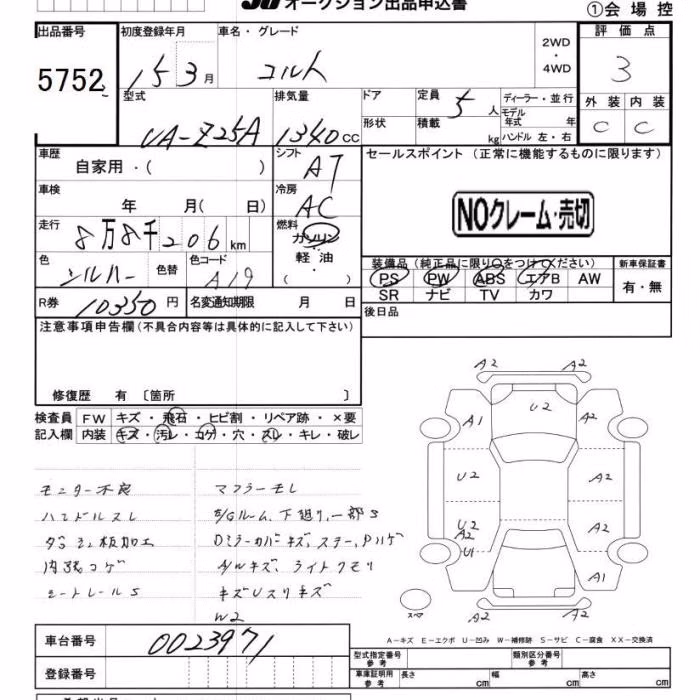 オークション出品申込書
①会場控
出品番号 初度登録年月 車名・グレード 2WD・4WD 評価点
5752 15 3月 コルト 3
型式 排気量 ドア 定員 5人 ディーラー・並行 外装 内装
UA-Z25A 1340cc 形状 積載 kg モデル年式 年 C C
ハンドル 左・右
車歴 自家用・( ) シフト AT セールスポイント（正常に機能するものに限ります）
車検 年 月( 日) 冷房 AC NOクレーム・売切
走行 8万8千206km 燃料 ガソリン・軽油・( )
色 シルバー 色替 色コード A19 装備品（純正品に限り○をつけてください） 新車保証書
PS PW ABS エアB AW 有・無
SR ナビ TV カワ
R券 10350円 名変通知期限 月 日 後日品
注意事項申告欄(不具合内容等は具体的に記入して下さい)
修復歴 有 〔箇所 〕
検査員 FW キズ・飛石・ヒビ割・リペア跡・×要
記入欄 内装 キズ・汚レ・コゲ・穴・スレ・キレ・破レ
モニター不良 マフラーモレ
ハンドルスレ E/Gルーム、下廻り、一部S
ダッシュ板加工 Dミラーカバーキズ、
内張コゲ A/Wキズ、ライトクモリ
シートレールS キズUスリキズ
W2
A2 A2
U2
A1 A2
U2 A2
U2 A2 A2
U1
A1
A2 A2
スペア
A－キズ E－エクボ U－凹み W－補修跡 S－サビ C－腐食 XX－交換済
車台番号 0023971 型式指定番号 参考 類別区分番号 参考
登録番号 車庫証明用 参考 長さ cm 幅 cm 高さ cm